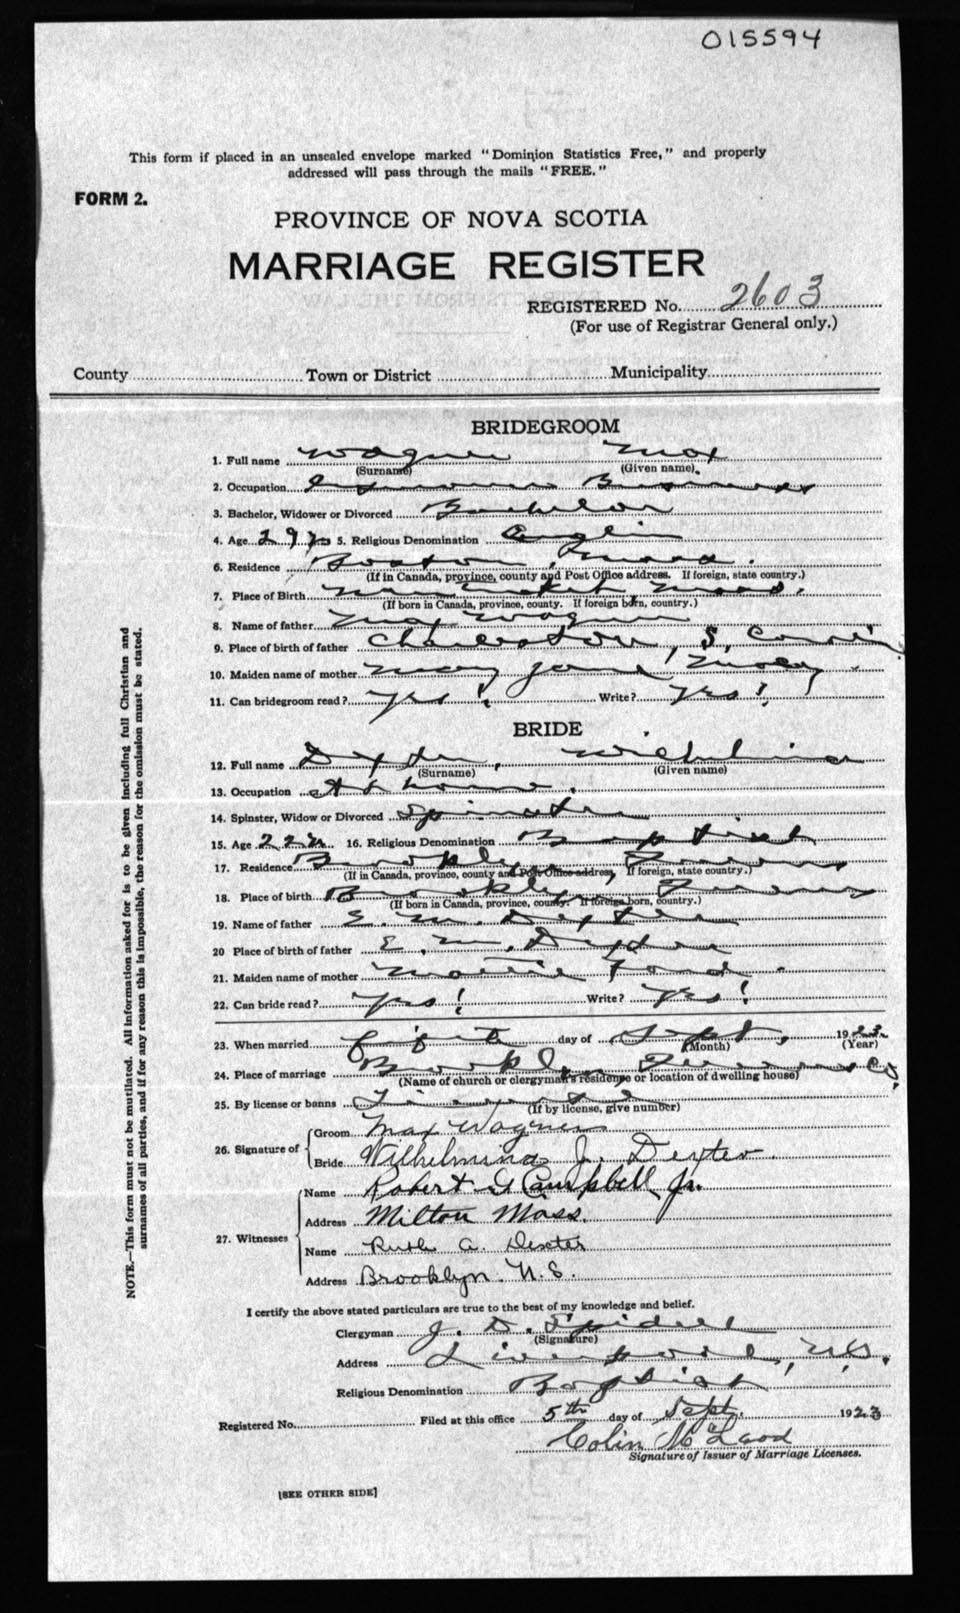 015594
This form if placed in an unsealed envelope marked "Dominion Statistics Free," and properly
addressed will pass through the mails "FREE."
FORM 2.
PROVINCE OF NOVA SCOTIA
MARRIAGE REGISTER
REGISTERED No. 2603
(For use of Registrar General only.)
County Town or District Municipality
BRIDEGROOM
1. Full name Wagner Max
(Surname) (Given name).
2. Occupation Insurance Business
3. Bachelor, Widower or Divorced Bachelor
4. Age 29 5. Religious Denomination
6. Residence Boston, Mass.
(If in Canada, province, county and Post Office address. If foreign, state country.)
7. Place of Birth Mass.
(If born in Canada, province, county. If foreign born, country.)
8. Name of father Max Wagner
9. Place of birth of father Charleston, S,
10. Maiden name of mother Mary Jane
11. Can bridegroom read? Yes! Write? Yes!
BRIDE
12. Full name Dexter, Wilhelmina
(Surname) (Given name)
13. Occupation At home.
14. Spinster, Widow or Divorced Spinster
15. Age 22 16. Religious Denomination Baptist
17. Residence Brooklyn, Queens
(If in Canada, province, county and Post Office address, If foreign, state country.)
18. Place of birth Brooklyn, Queens
(If born in Canada, province, county. If foreign born, country.)
19. Name of father E. M. Dexter
20 Place of birth of father E. M. Dexter
21. Maiden name of mother Mattie Ford.
22. Can bride read? Yes! Write? Yes!
23. When married fifth day of Sept, 1923
(Month) (Year)
24. Place of marriage Brooklyn Queens Co,
(Name of church or clergyman's residence or location of dwelling house)
25. By license or banns License
(If by license, give number)
26. Signature of Groom Max Wagner
Bride Wilhelmina J. Dexter.
27. Witnesses Name Robert G Campbell Jr.
Address Milton Mass.
Name Ruth A. Dexter
Address Brooklyn. N.S.
I certify the above stated particulars are true to the best of my knowledge and belief.
Clergyman J. D. Spidell
(Signature)
Address Liverpool, N.S.
Religious Denomination Baptist
Registered No. Filed at this office 5th day of Sept. 1923
Colin McLeod
Signature of Issuer of Marriage Licenses.
[SEE OTHER SIDE]
NOTE.—This form must not be mutilated. All information asked for is to be given including full Christian and
surnames of all parties, and if for any reason this is impossible, the reason for the omission must be stated.